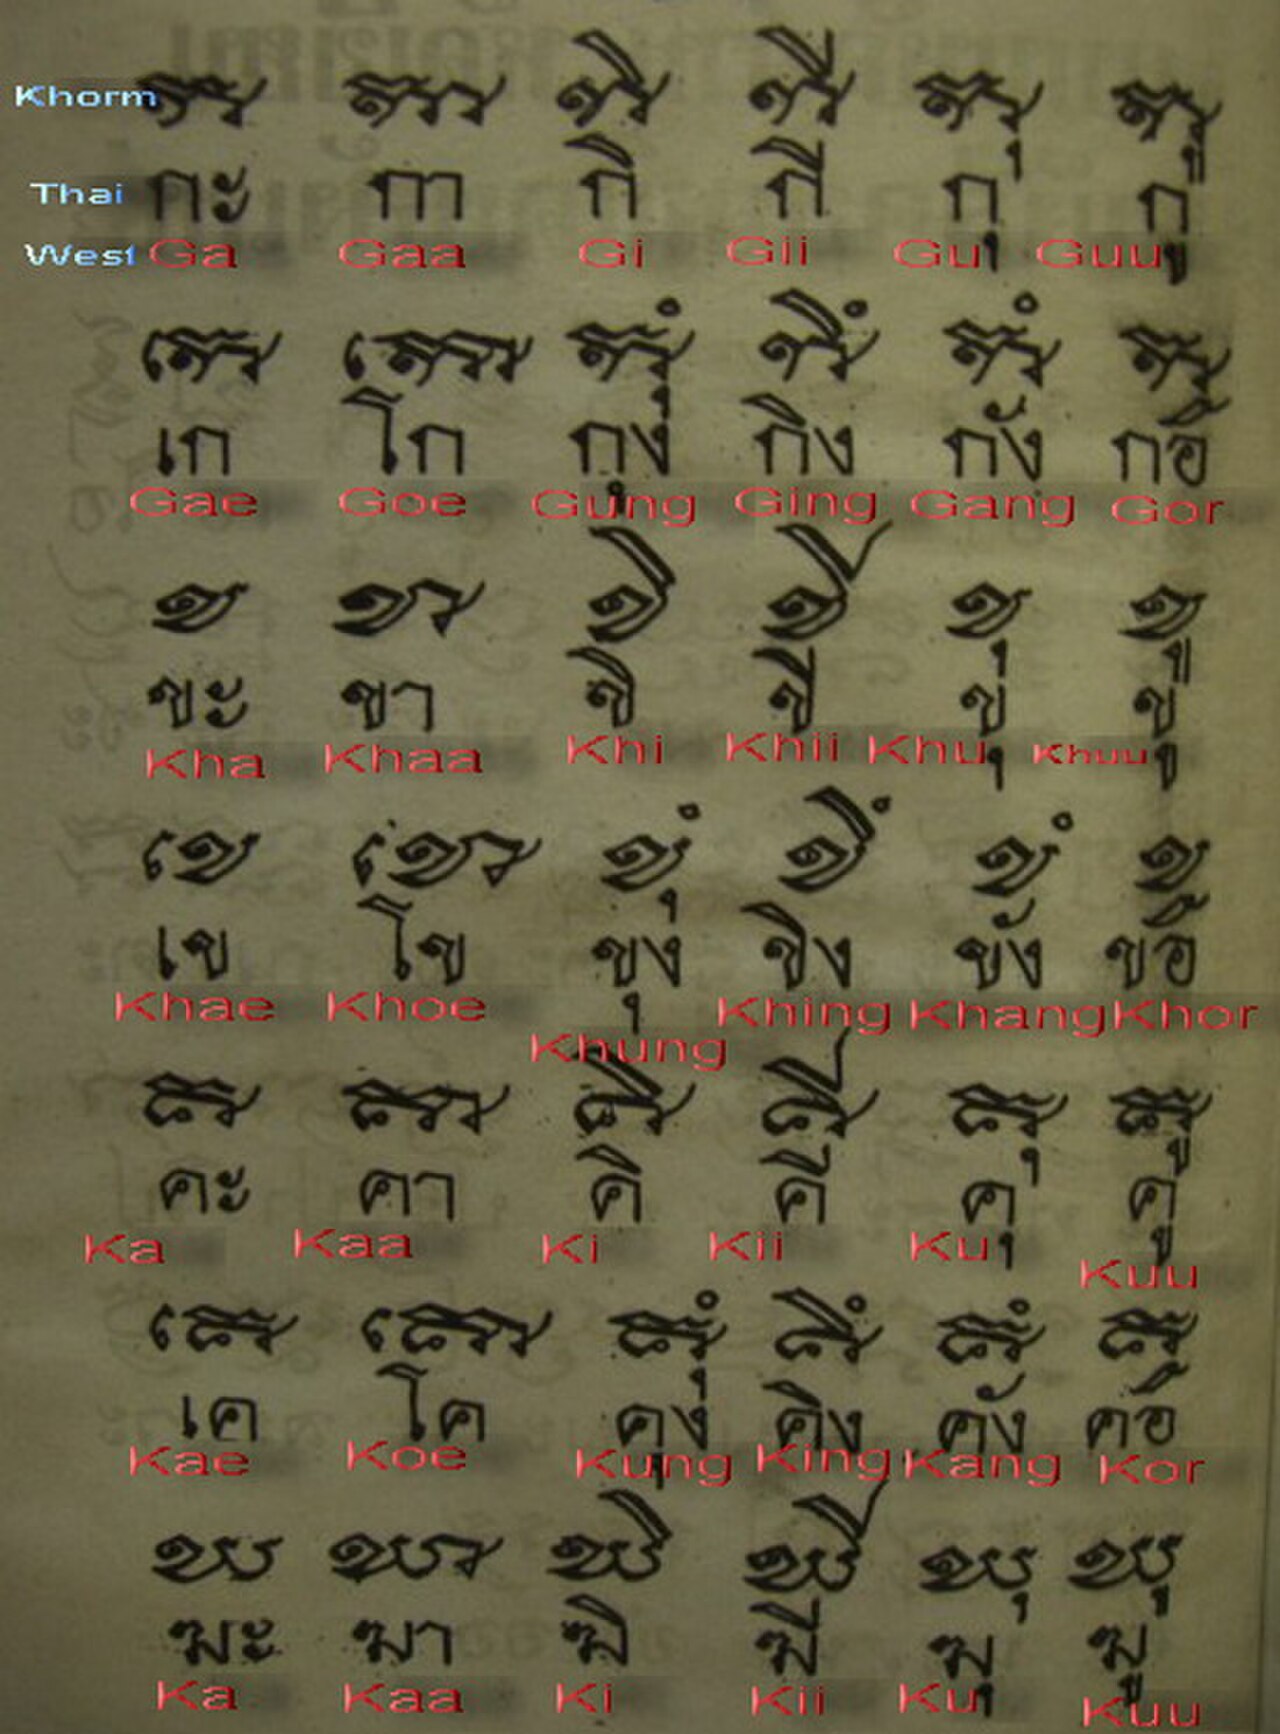 Khorm ក កា កិ កី កុ កូ
Thai กะ กา กิ กี กุ กู
West Ga Gaa Gi Gii Gu Guu
កេ កោ កុំ កិំ កំ ក
เก โก กุง กิง กัง
Gae Goe Gung Ging Gang Gor
ខ ខា ខិ ខី ខុ ខូ
ขะ ขา ขิ ขี ขุ ขู
Kha Khaa Khi Khii Khu Khuu
ខេ ខោ ខុំ ខិំ ខំ ខ
เข โข ขุง ขิง ขัง
Khae Khoe Khung Khing Khang Khor
គ គា គិ គី គុ គូ
คะ คา คิ คี คุ คู
Ka Kaa Ki Kii Ku Kuu
គេ គោ គុំ គិំ គំ គ
เค โค คุง คิง คัง
Kae Koe Kung King Kang Kor
ឃ ឃា ឃិ ឃី ឃុ ឃូ
ฆะ ฆา ฆิ ฆี ฆุ ฆู
Ka Kaa Ki Kii Ku Kuu